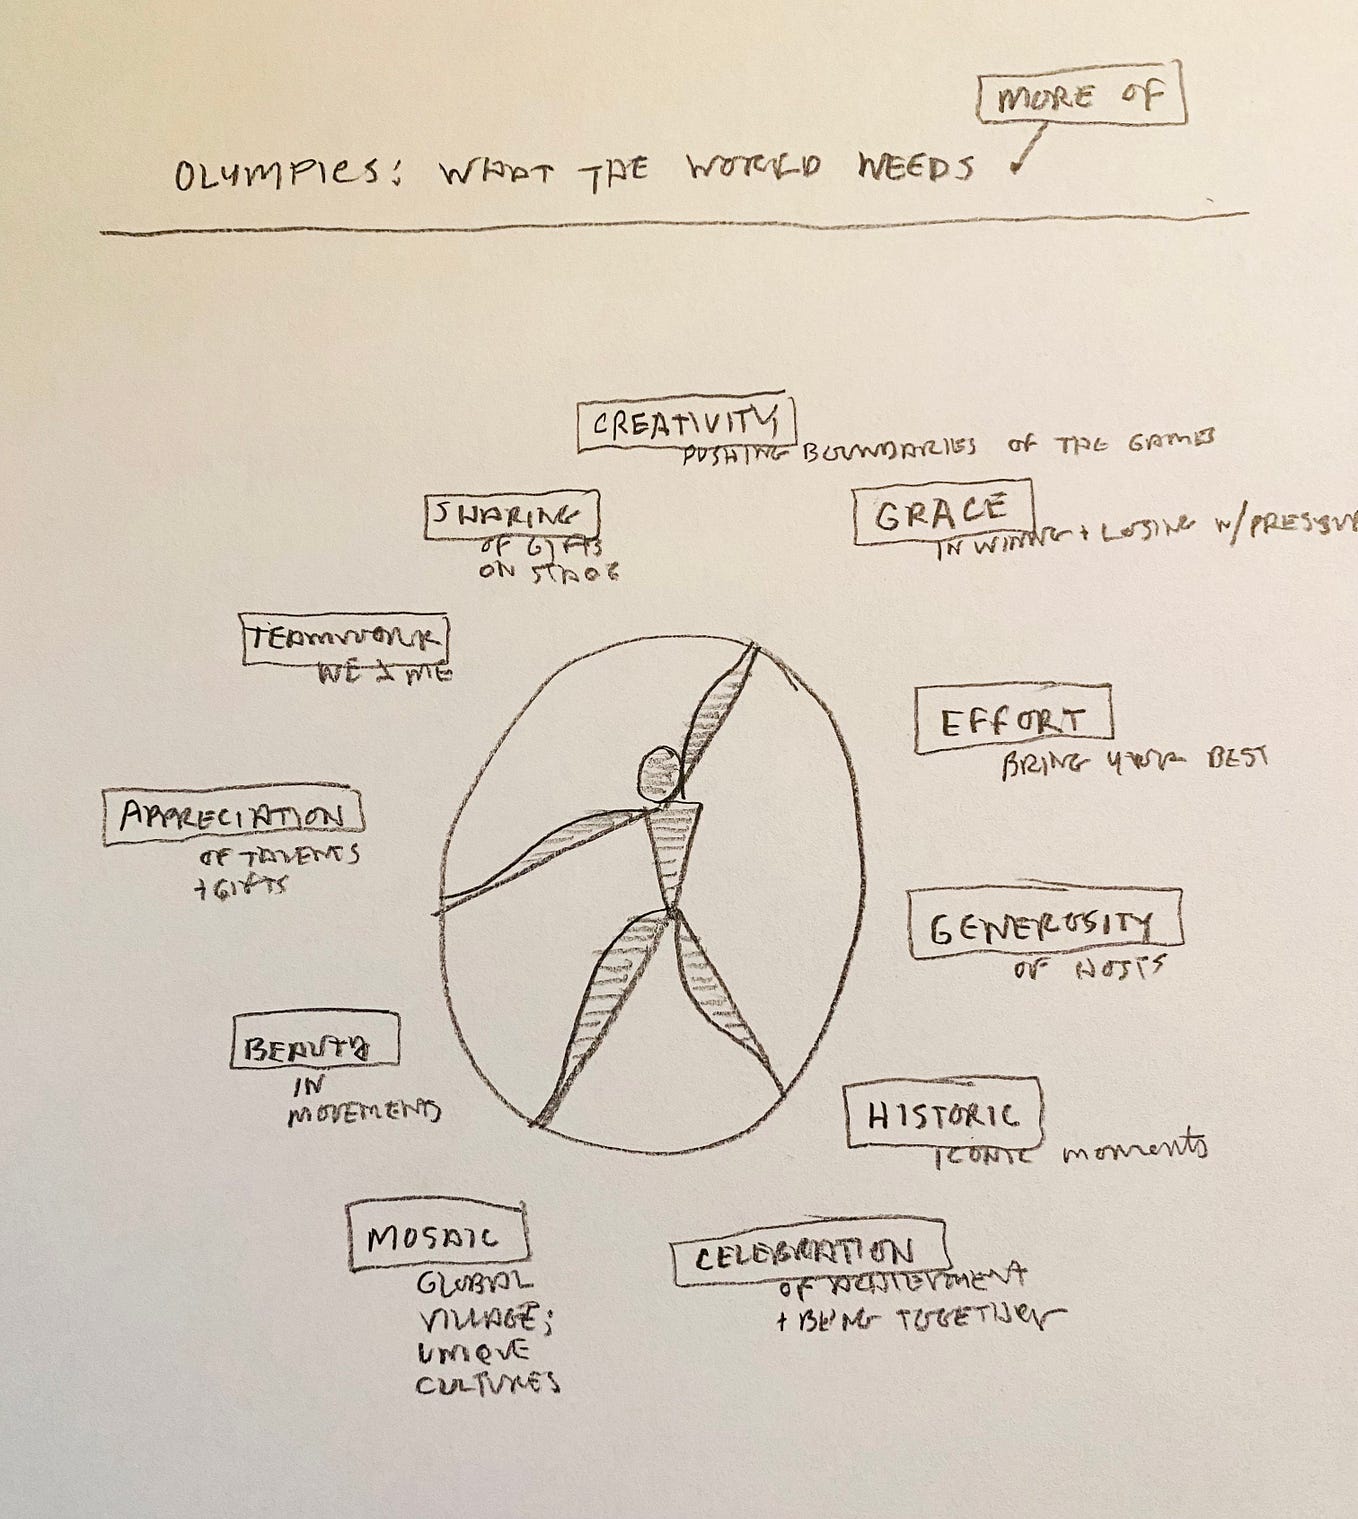 MORE OF
OLYMPICS: WHAT THE WORLD NEEDS
CREATIVITY
PUSHING BOUNDARIES OF THE GAMES
GRACE
IN WINNG + LOSING W/PRESSUR
EFFORT
BRING YOUR BEST
GENEROSITY
OF HOSTS
HISTORIC
ICONIC moments
CELEBRATION
OF ACHIEVMENT
+ BEING TOGETHER
MOSAIC
GLOBAL
VILLAGE;
UNIQUE
CULTURES
BEAUTY
IN
MOVEMENTS
APPRECIATION
OF TALENTS
+ GIFTS
TEAMWORK
WE ME
SHARING
OF GIFTS
ON STAGE